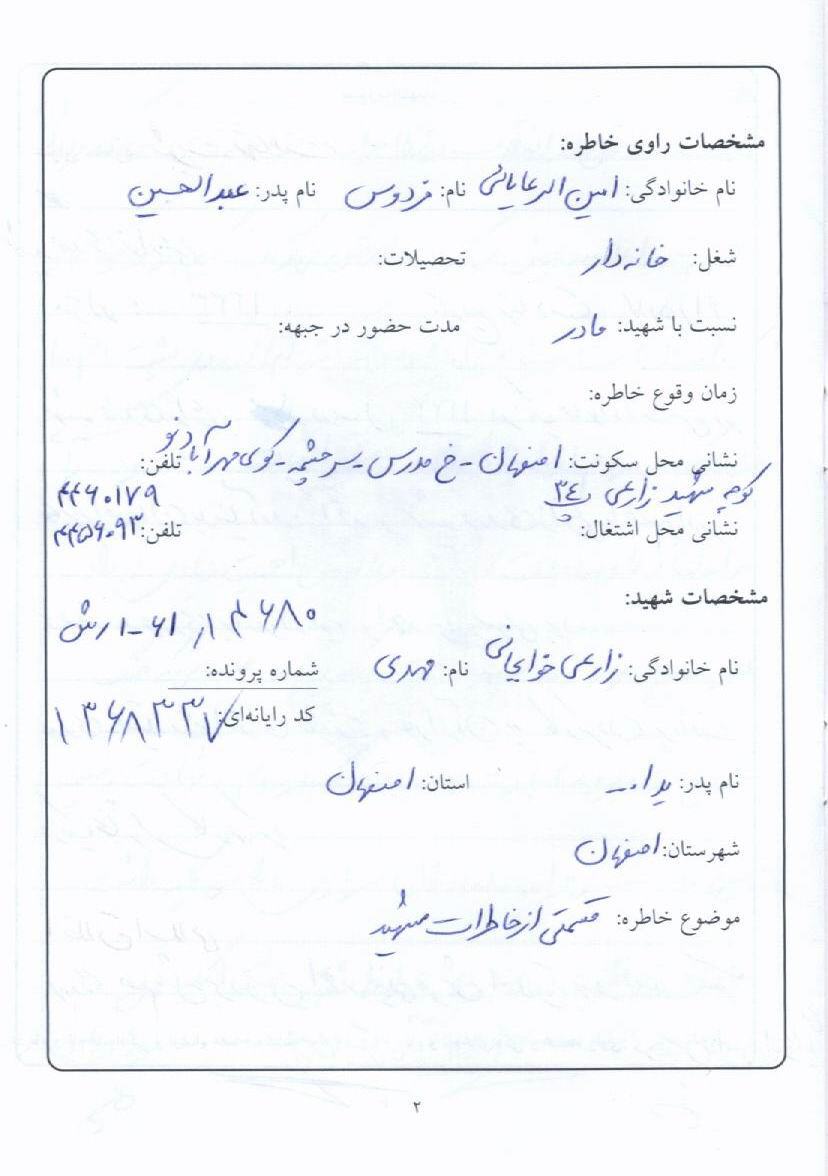 مشخصات راوی خاطره:
نام خانوادگی: امین الرعایائی نام: فردوس نام پدر: عبدالحسین
شغل: خانه دار تحصیلات:
نسبت با شهید: مادر مدت حضور در جبهه:
زمان وقوع خاطره:
نشانی محل سکونت: اصفهان - خ مدرس - سرچشمه - کوی مهرآباد نو تلفن:
کوچه شهید زارعی پ ۳۴ ۴۴۶۰۱۷۹
نشانی محل اشتغال: تلفن: ۴۴۵۶۰۹۳
مشخصات شهید:
نام خانوادگی: زارعی خوابجانی نام: مهدی شماره پرونده:
کد رایانه‌ای: ۱۳۶۸۳۳۷
نام پدر: یداله استان: اصفهان
شهرستان: اصفهان
موضوع خاطره: قسمتی از خاطرات شهید
۲